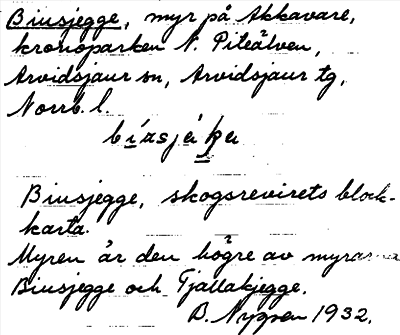 Biusjegge, myr på Akkavare,
kronoparken N. Piteälven,
Arvidsjaur sn, Arvidsjaur tg,
Norrb. l.
Biusjegge, skogsrevirets block-
karta.
Myren är den högre av myrarna
Biusjegge och Tjallakjegge.
B. Nygren 1932.